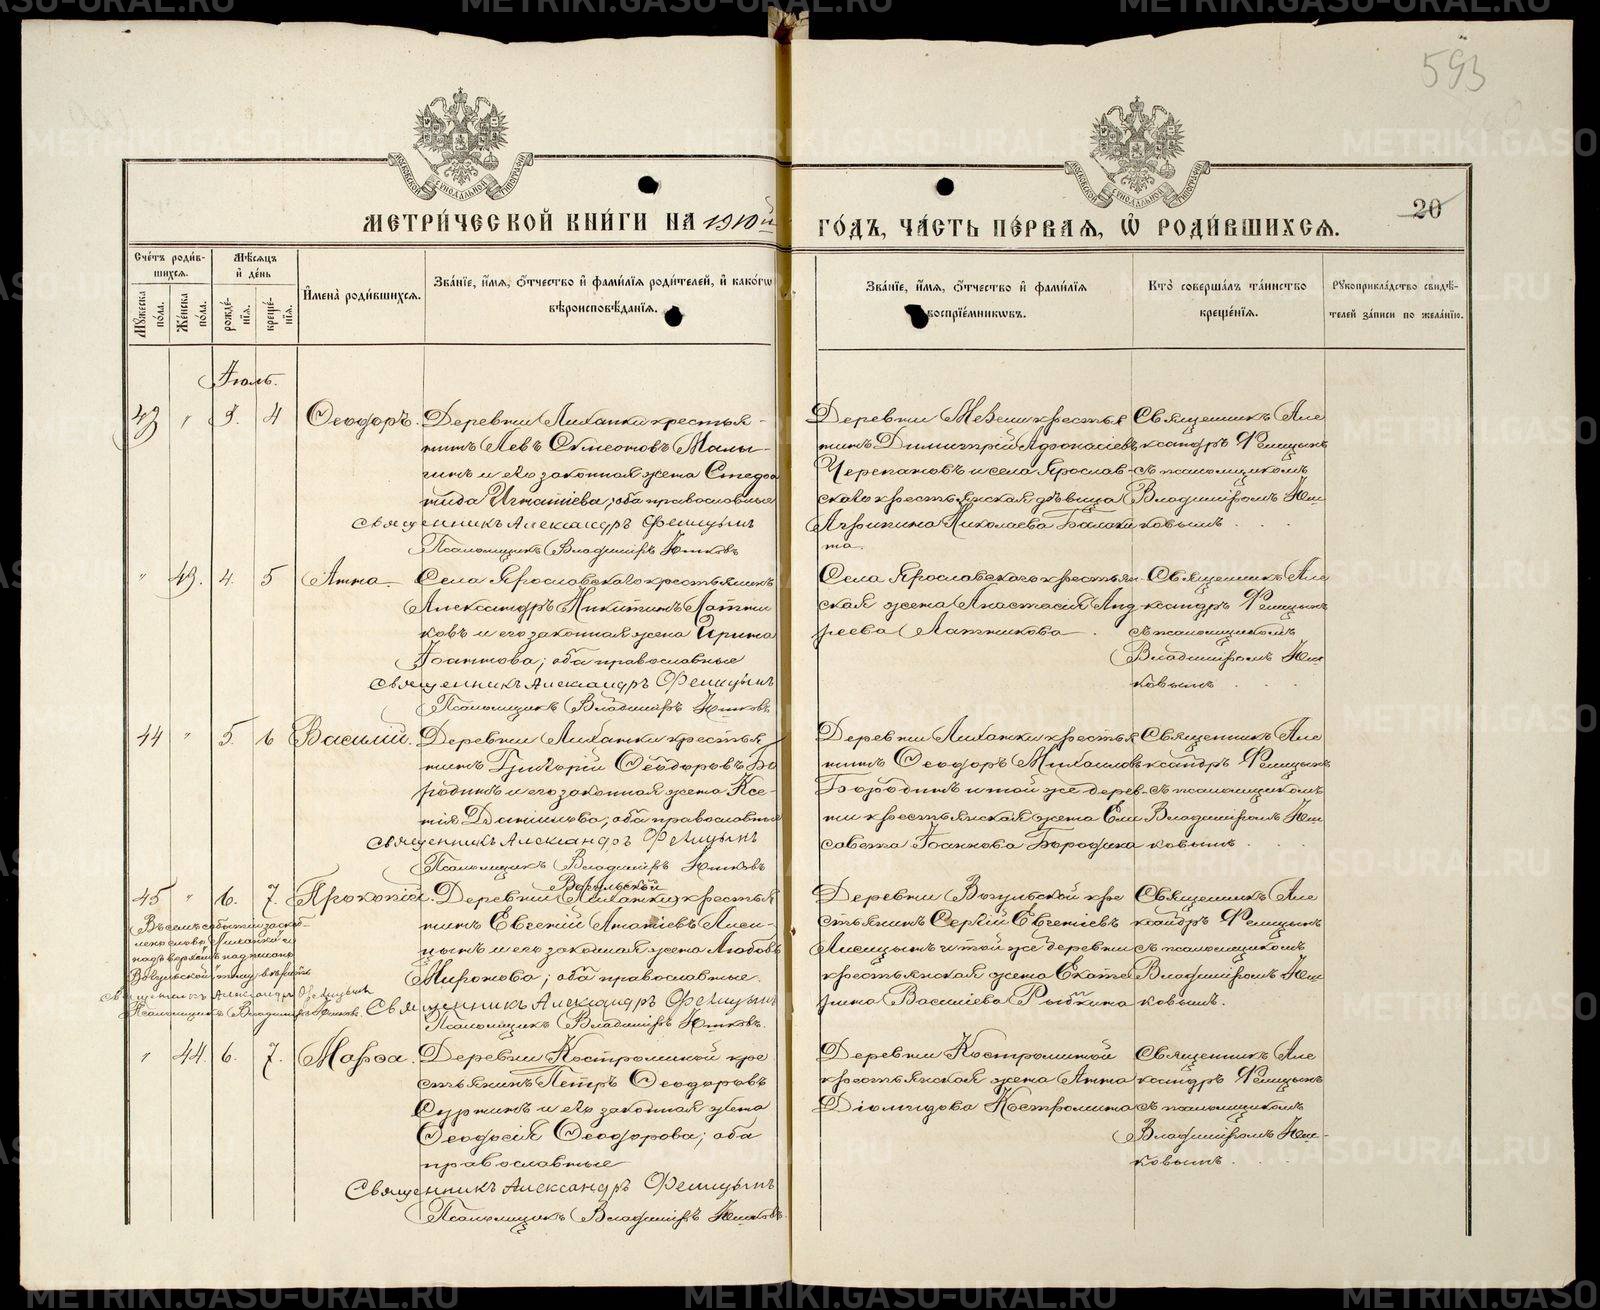 593
20
МЕТРИ́ЧЕСКОЙ КНИ́ГИ НА 1910й ГО́ДЪ, ЧА́СТЬ ПЕ́РВАЯ, Ѡ РОДИ́ВШИХСЯ.
Сче́тъ роди́в-
шихся.
Мужеска по́ла.
Же́нска по́ла.
Мѣ́сяцъ
и́ де́нь
рожде́-
нїя.
креще́-
нїя.
И҆мена̀ роди́вшихся.
Зва́нїе, и҆́мя, ѻ҆́тчество и҆ фами́лїя роди́телей, и҆ како́гѡ
вѣроисповѣ́данїя.
Зва́нїе, и҆́мя, ѻ҆́тчество и҆ фами́лїя
воспрїе́мникѡвъ.
Кто̀ соверша́лъ та́инство
креще́нїя.
Рꙋкоприкла́дство свидѣ́-
телей за́писи по жела́нїю.
Іюль.
43 " 3. 4 Ѳеодоръ.
Деревни Лиханки крестья-
нинъ Левъ Симеоновъ Малы-
гинъ и его законная жена Степа
нида Игнатіева; оба православные
Священникъ Александръ Фелицынъ
Псаломщикъ Владиміръ Юшковъ
крестья
нинъ Димитрій Аѳонасіевъ
Черепановъ и села Ярослав-
скаго крестьянская дѣвица
Агрипина Николаева Балаки
на.
Священникъ Але
ксандръ Фелицынъ
съ псаломщикомъ
Владиміромъ Юш
ковымъ.
" 43. 4. 5 Анна
Села Ярославскаго крестьянинъ
Александръ Никитинъ Латни
ковъ и его законная жена Ирина
Іоаннова; оба православные
Священникъ Александръ Фелицынъ
Псаломщикъ Владиміръ Юшковъ
Села Ярославскаго крестьян-
ская жена Анастасія Анд
реева Латникова
Священникъ Але
ксандръ Фелицынъ
съ псаломщикомъ
Владиміромъ Юш
ковымъ
44 " 5. 6 Василій.
Деревни Лиханки крестья
нинъ Григорій Ѳеодоровъ Бо
родинъ и его законная жена Ксе-
нія Даніилова; оба православные
Священникъ Александръ Фелицынъ
Псаломщикъ Владиміръ Юшковъ
Деревни Лиханки крестья
нинъ Ѳеодоръ Михаиловъ
Бородинъ и той же дерев-
ни крестьянская жена Ели
савета Іоаннова Бородина
Священникъ Але
ксандръ Фелицынъ
съ псаломщикомъ
Владиміромъ Юш
ковымъ
45 " 6. 7. Прокопій.
Вогульской
Деревни Лиханки крестья
нинъ Евгеній Лиси-
цынъ и его законная жена Любовь
Миронова; оба православные.
Священникъ Александръ Фелицынъ
Псаломщикъ Владиміръ Юшковъ.
Въ семъ событіи
слово „Лиханки" и
надъ верхомъ надписано
„Вогульской"
Священникъ Александръ Фелицынъ
Псаломщикъ Владиміръ Юшковъ.
Деревни Вогульской кре
стьянинъ Сергій Евгеніевъ
Лисицынъ и той же деревни
крестьянская жена Екате
рина Василіева Рыбкина
Священникъ Але
ксандръ Фелицынъ
съ псаломщикомъ
Владиміромъ Юш
ковымъ.
" 44. 6. 7. Марѳа.
Деревни Костроминой кре
стьянинъ Петръ Ѳеодоровъ
Суринъ и его законная жена
Ѳеодосія Ѳеодорова; оба
православные
Священникъ Александръ Фелицынъ
Псаломщикъ Владиміръ Юшковъ
Деревни Костроминой
крестьянская жена Анна
Діомидова Костромина
Священникъ Але
ксандръ Фелицынъ
съ псаломщикомъ
Владиміромъ Юш-
ковымъ.
METRIKI.GASO-URAL.RU